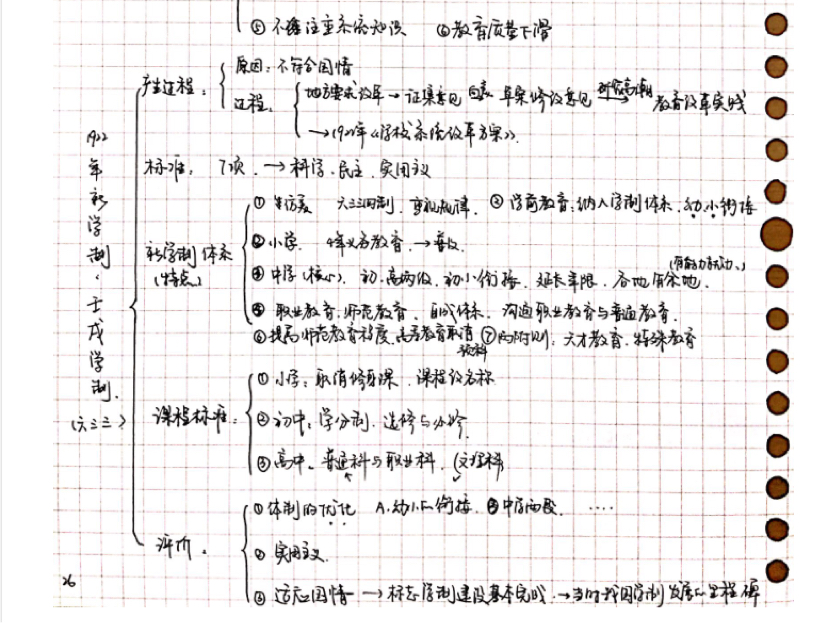 ⑤ 不注重系统知识 ⑥ 教育质量下滑
产生过程： 原因：不符合国情
过程： 地方要求改革 → 征集意见 草案修改意见 → 教育改革实践
→ 1922年《学校系统改革方案》
1922年新学制·壬戌学制.（六三三）
标准： 7项. → 科学. 民主. 实用主义
新学制体系（特点）
① 六三三四制. ② 学前教育：纳入学制体系. 幼.小衔接
②小学. 义务教育. → 普及.
④ 中学（核心）. 初.高两级. 初小衔接. 延长年限. 各地留余地.
⑤ 职业教育.师范教育. 自成体系. 沟通职业教育与普通教育.
⑥提高师范教育程度.高等教育取消预科 ⑦两附则：天才教育.特殊教育
课程标准：
① 小学：取消修身课. 课程改名称
② 初中：学分制. 选修与必修
③ 高中. 普通科与职业科. （文理科）
评价：
① 体制的优化 A.幼小衔接. B 中学两段. ····
② 实用主义.
③ 适应国情 → 标志学制建设基本完成. → 当时我国学制发展的里程碑
26